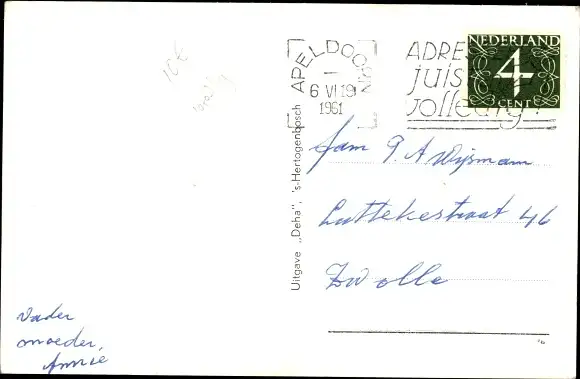 10€
APELDOORN
6 VI 19
1961
ADRES
juist
volledig!
NEDERLAND
4
CENT
Uitgave „Deha”, 's-Hertogenbosch
Fam G. A Wijsman
Luttekestraat 46
Zwolle
Vader
moeder,
Annie